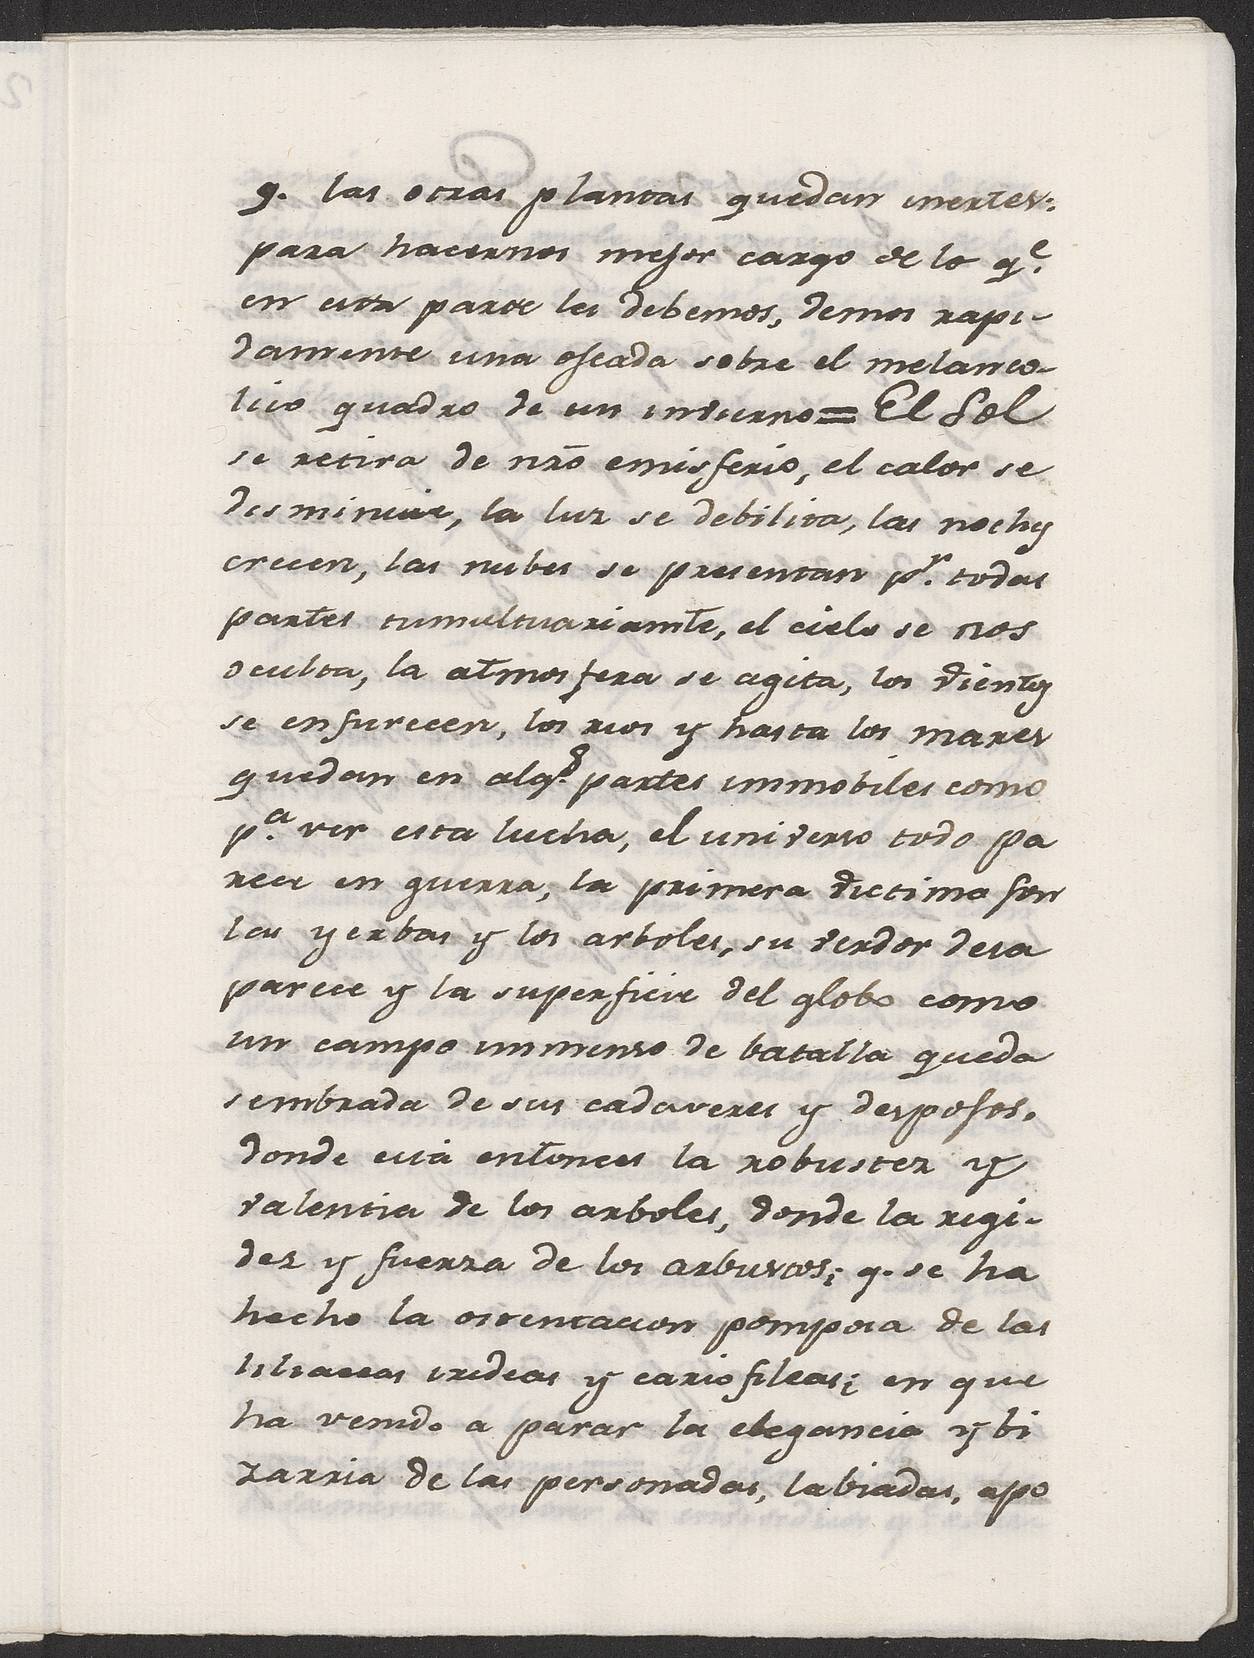 q. las otras plantas quedan inertes:
para hacernos mejor cargo de lo q.e
en esta parte les debemos, demos rapi-
damente una ojeada sobre el melanco-
lico quadro de un invierno = El Sol
se retira de nr̃o emisferio, el calor se
desminuie, la luz se debilita, las noches
crecen, las nubes se presentan p.r todas
partes tumultuariamte, el cielo se nos
oculta, la atmosfera se agita, los vientos
se enfurecen, los rios y hasta los mares
quedan en alg.s partes immobiles como
p.a ver esta lucha, el universo todo pa
rece en guerra, la primera victima son
las yerbas y los arboles, su verdor desa
parece y la superficie del globo como
un campo immenso de batalla queda
sembrada de sus cadaveres y despojos.
donde está entonces la robustez y
valentia de los arboles, donde la rigi-
dez y fuerza de los arbustos; q. se ha
hecho la ostentacion pomposa de las
liliaceas irideas y cariofileas; en que
ha venido a parar la elegancia y bi
zarria de las personadas, labiadas, apo